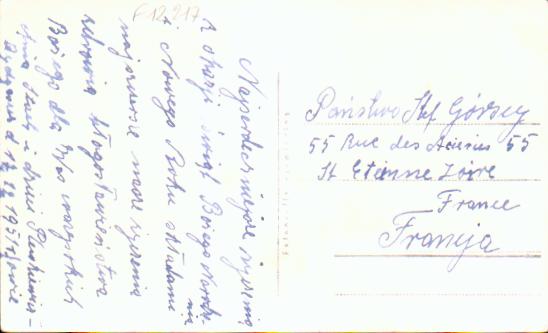 F12.217
Najserdeczniejsze życzenia
z okazji świąt Bożego Narodze-
nia
i Nowego Roku składam
najszczersze nasze życzenia
zdrowia błogosławieństwa
Bożego dla Was wszystkich
Państwo Stef Górscy
55 Rue des Acacias 55
St Etienne Loire
France
Francja